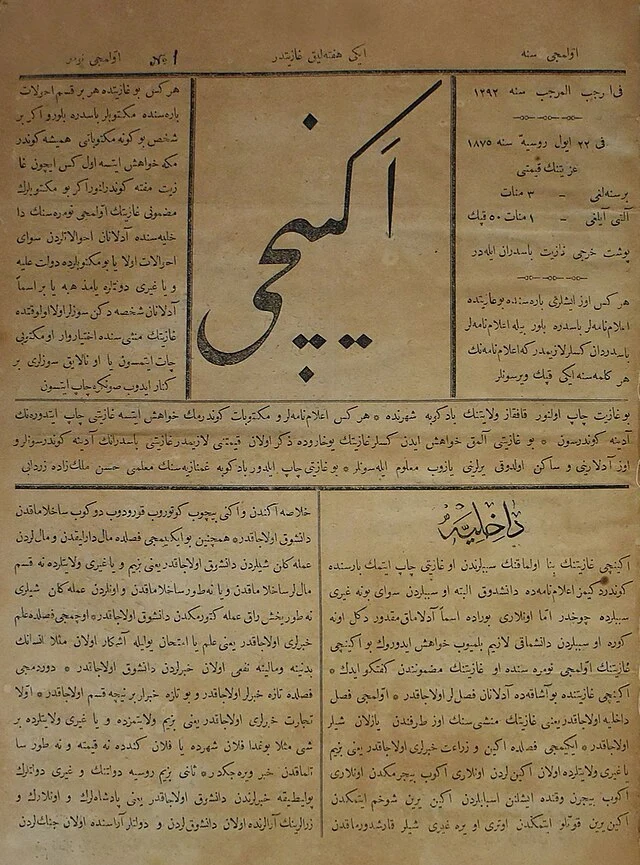 اولمجی سنه
ایکی هفته‌لیق غازیتدر
№ 1
اولمجی نومر
فی ۱ رجب المرجب سنه ۱۲۹۲
فی ۲۲ ایول روسیه سنه ۱۸۷۵
غزیتنك قیمتی
برسنه‌لغی - ۳ منات
آلتی آیلغی - ۱ منات ۵۰ قپك
پوشت خرجی غازیت باسدران ایله‌در
هر کس اوز ایشلری باره‌سنده بو غازیتده
اعلام‌نامه‌لر باسدوره باور بیله اعلام‌نامه‌لر
باسدوردان کسلر لازیمدر که اعلام‌نامه‌نك
هر کلمه‌سنه ایکی قپك ویرسونلر
اکینچی
هر کس بو غازیتده هر بر قسم احولات
باره‌سنده مکتوبلر باسدره بلور و اکر بر
شخص بو کونه مکتوباتی همیشه کوندر
مکه خواهش ایتسه اول کس ایچون غا
زیت مفته کوندرلنور اکر بو مکتوبلرك
مضمونی غازیتك اولمجی نومره سنك دا
خلیه‌سنده آدلانان احوالاتلردن سوای
احوالات اولا یا بو مکتوبلرده دولت علیه
و یا غیری دوتلره یامذ هبه یا بر اسما
آدلانان شخصه دکن سوزلر اولا اولوقتده
غازیتك منشی سنده اختیار وار او مکتوبی
چاپ ایتمسون یا او نالایق سوزلری بر
کنار ایدوب صوکره چاپ ایتسون
بو غازیت چاپ اولنور قافقاز ولایتنك بادکوبه شهرنده * هر کس اعلام‌نامه‌لر و مکتوبات کوندرمك خواهش ایتسه غازیتی چاپ ایتدوره‌نك
آدینه کوندرسون * بو غازیتی آلمق خواهش ایدن کسلر غازیتك یوخاروده ذکر اولان قیمتنی لازیمدر غازیتی باسدرانك آدینه کوندرسونلر و
اوز آدلارینی و ساکن اولدوقی یرلرینی یازوب معلوم ایله‌سونلر * بو غازیتی چاپ ایلدور بادکوبه غمنازیه‌سنك معلمی حسن ملك‌زاده زردابی
داخلیه
اکینچی غازیتنك بنا اولماقنك سببلرندن او غازیتی چاپ ایتمك بارسنده
کوندردکیمز اعلام‌نامه‌ده دانشدوق البته او سببلردن سوای بونه غیری
سببلرده چوخدر اما اونلاری بوراده اسما آدلاماق مقدور دکل اونه
کوره او سببلردن دانشماقی لازیم بلمیوب خواهش ایدوروك بو اکینچی
غازیتنك اولمجی نومره سنده او غازیتنك مضمونندن کفتکو ایدك *
اکینچی غازیتنده بو آشاقه‌ده آدلانان فصل‌لر اولاجاقدر * اولمجی فصل
داخلیه اولاجاقدر یعنی غازیتك منشی‌سنك اوز طرفندن یازلان شیلر
اولاجاقدر * ایکیمجی فصلده اکین و زراعت خبرلری اولاجاقدر یعنی بزیم
یا غیری ولایتلرده اولان اکین‌لردن اونلاری اکوب بیچرمکدن اونلاری
اکوب بیچرن وقتده ایشلنن اسبابلردن اکین یرین شوخم ایتمکدن
اکین برین قوتلو ایتمکدن اوتری او یره غیری شیلر قارشدورماقدن
خلاصه اکندن و اکنی بیچوب کوتوروب قورودوب دوکوب ساخلاماقدن
دانشوق اولاجاقدر * همچنین بو ایکیمجی فصلده مال دارلیقدن و مال لردن
عمله کان شیلردن دانشوق اولاجاقدر یعنی بزیم و یا غیری ولایتلرده نه قسم
مال لر ساخلاماقدن و یا نه‌طور ساخلاماقدن و اونلردن عمله‌کان شیلری
نه طور یخش راق عمله کتورمکدن دانشوق اولاجاقدر * اوچمجی فصلده علم
خبرلری اولاجاقدر یعنی علم یا امتحان بوالیله آشکار اولان مثلا انسانك
بدنینه و مالینه نفعی اولان خبرلردن دانشوق اولاجاقدر * دوردمجی
فصلده تازه خبرلر اولاجاقدر و بو تازه خبرلر بر نیچه قسم اولاجاقدر * اولا
تجارت خبرلری اولاجاقدر یعنی بزیم ولایتمزده و یا غیری ولایتلرده بر
شی مثلا بوغدا فلان شهرده یا فلان کندده نه قیمته و نه طور سا
تلماقدن خبر ویره‌جکدر * ثانی بزیم روسیه دولتنك و غیری دولتلرك
پولیطیقه خبرلرندن دانشوق اولاجاقدر یعنی پادشاه‌لرك و اونلارك و
زرالرینك آرالرنده اولان دانشوق‌لردن و دولتلر آراسنده اولان جنك‌لردن